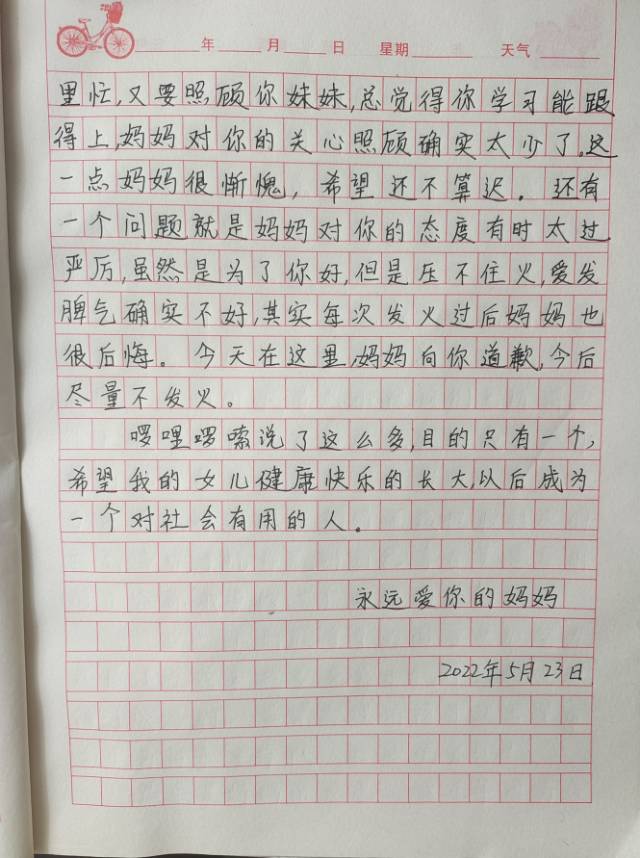 年 月 日 星期 天气
里忙,又要照顾你妹妹,总觉得你学习能跟
得上,妈妈对你的关心照顾确实太少了,这
一点妈妈很惭愧,希望还不算迟。还有
一个问题就是妈妈对你的态度有时太过
严厉,虽然是为了你好,但是压不住火,爱发
脾气确实不好,其实每次发火过后妈妈也
很后悔。今天在这里,妈妈向你道歉,今后
尽量不发火。
啰哩啰嗦说了这么多,目的只有一个,
希望我的女儿健康快乐的长大,以后成为
一个对社会有用的人。
永远爱你的妈妈
2022年5月23日